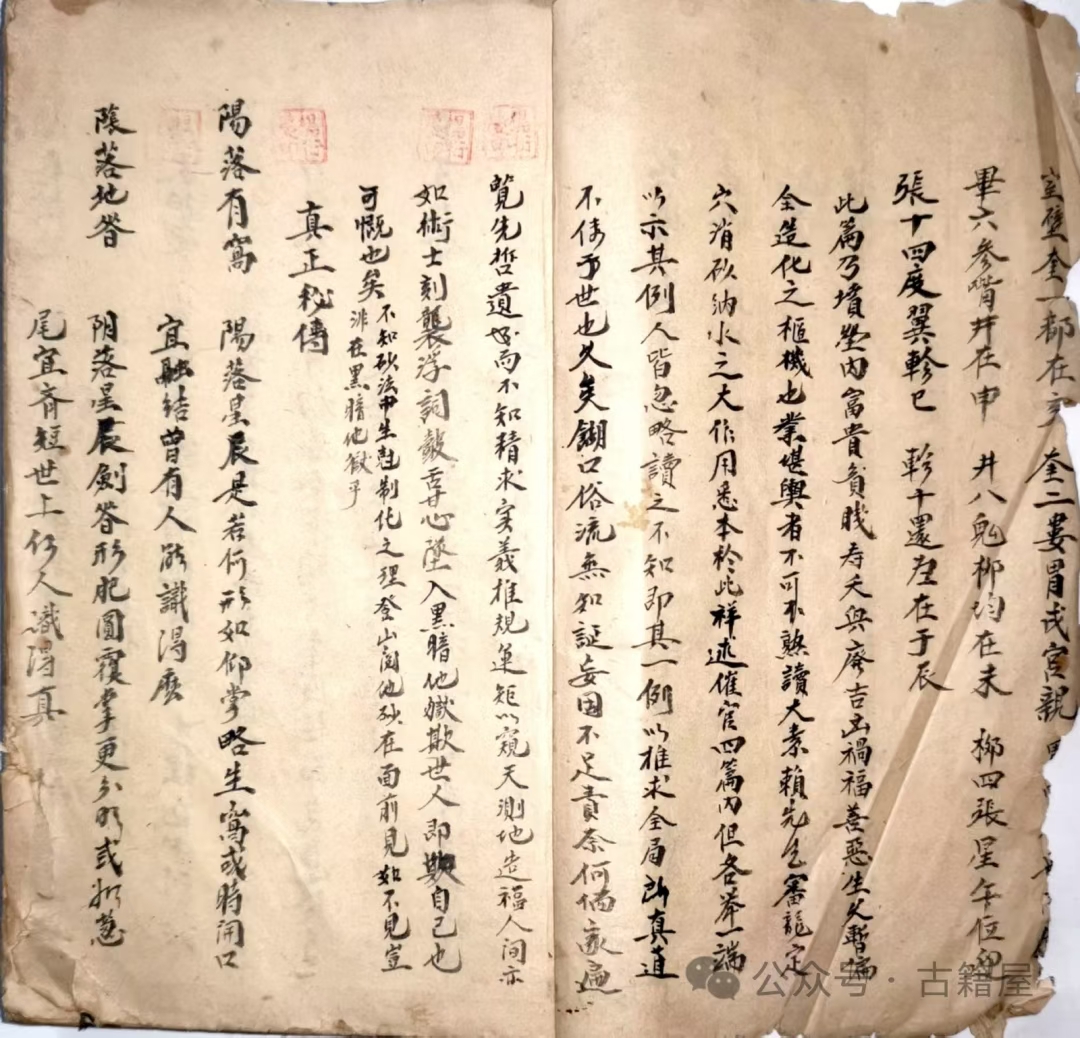 室壁奎一都在亥　奎二婁胃戌宮親
畢六參嘴井在申　井八鬼柳均在未　柳四張星午位
張十四度翼軫巳　軫十還歸在于辰
此篇乃墳塋內富貴貧賤寿夭興廢吉凶禍福善惡生久暫偏
全造化之樞機也業堪輿者不可不熟讀大素賴先生審龍定
穴消砂納水之大作用悉本於此祥述催官四篇內但各举一端
以示其例人皆忽略讀之不知即其一例以推求全局所真道
不傳于世也久矣餬口俗流無知証妄因不足責奈何儒家遍
覽先哲遺書而不知精求实義推規運矩以窺天測地造福人间亦
如術士刻襲浮詞鼓舌甘心墜入黑暗地嶽欺世人即欺自己也
可慨也矣
不知砂法中生尅制化之理登山閲地砂在面前見如不見豈
非在黑暗地獄乎
真正秘傳
陽落有窩　陽落星辰是若何形如仰掌略生窩或時開口
宜融結曽有人能識得麽
陰落地笞　阴落星辰劍笞形肥圓覆掌更分明或抝葱
尾宜齐短世上何人識得真
公众号 · 古籍屋